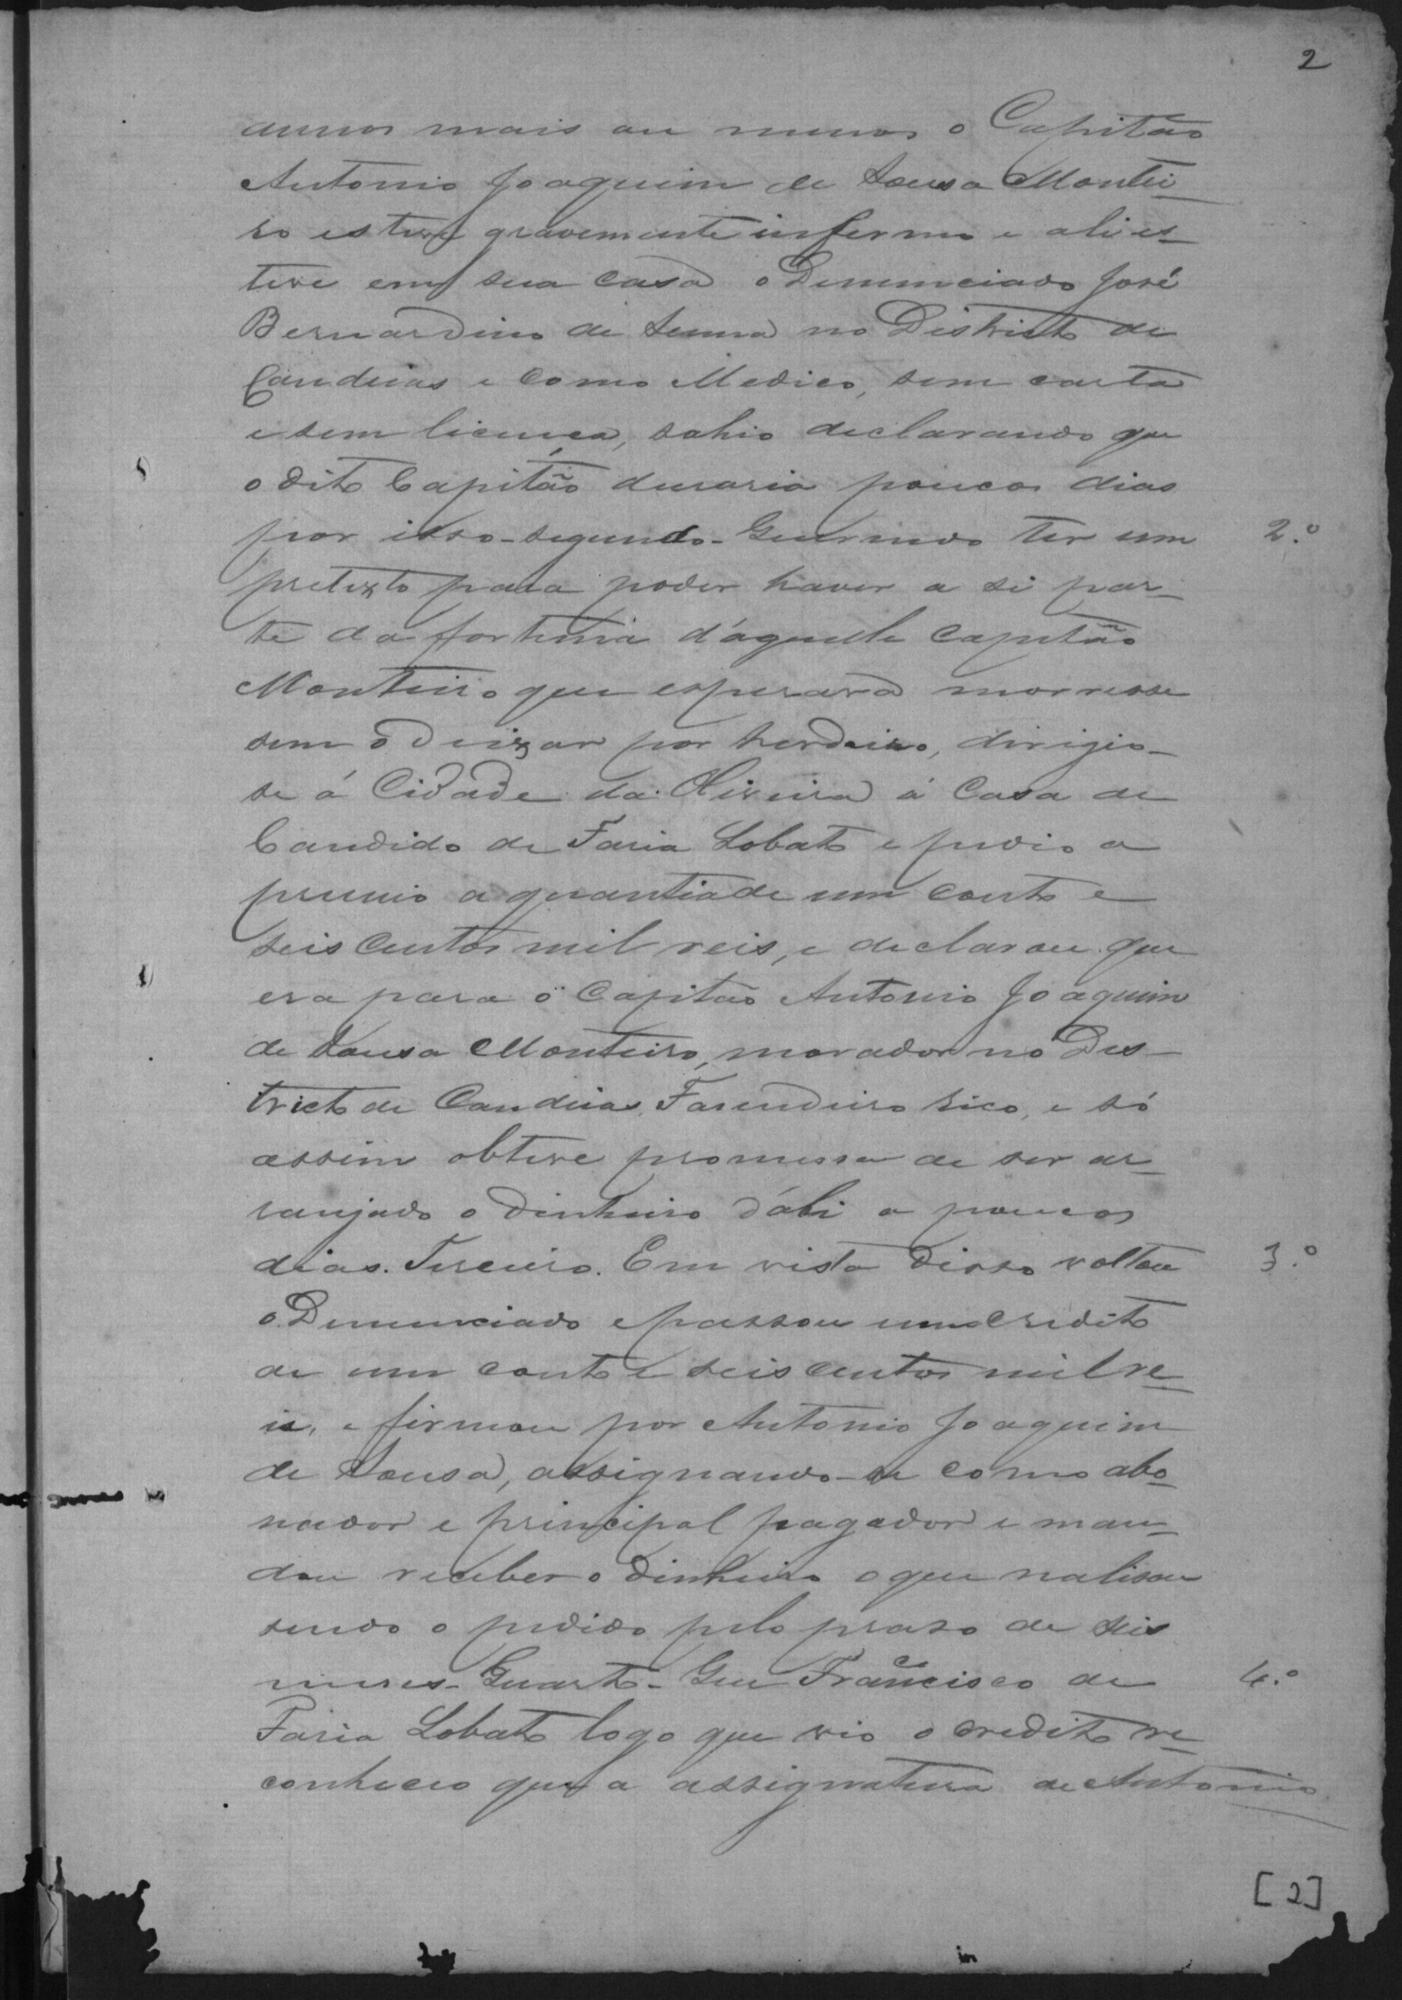 2
annos mais ou menos o Capitão
Antonio Joaquim de Sousa Montei-
ro esteve gravemente infermo e ali es-
teve em sua casa o Denunciado José
Bernardino de Senna no Districto de
Candeias e como Medico, sem carta
e sem licença, sahio declarando que
o dito Capitão duraria poucos dias
por isso - segundo - Querendo ter um 2.º
pretexto para poder haver a si par-
te da fortuna d'aquelle Capitão
Monteiro que esperava morresse
sem o deixar por herdeiro, dirigio-
se á Cidade da Oliveira á Casa de
Candido de Faria Lobato e pedio a
premio a quantia de um conto e
seis centos mil reis, e declarou que
era para o Capitão Antonio Joaquim
de Sousa Monteiro, morador no Des-
tricto de Candeias, Fasendeiro rico, e só
assim obteve promessa de ser ar-
ranjado o dinheiro d'ahi a poucos
dias. Terceiro. Em vista disso voltou 3.º
o Denunciado e passou um credito
de um conto e seis centos mil re-
is, e firmou por Antonio Joaquim
de Sousa, assignando-se como abo-
nador e principal pagador e man-
dou receber o dinheiro o que realisou
sendo o pedido pelo praso de seis
meses - Quarto - Que Francisco de 4.º
Faria Lobato logo que vio o credito re-
conheceo que a assignatura de Antonio
[2]